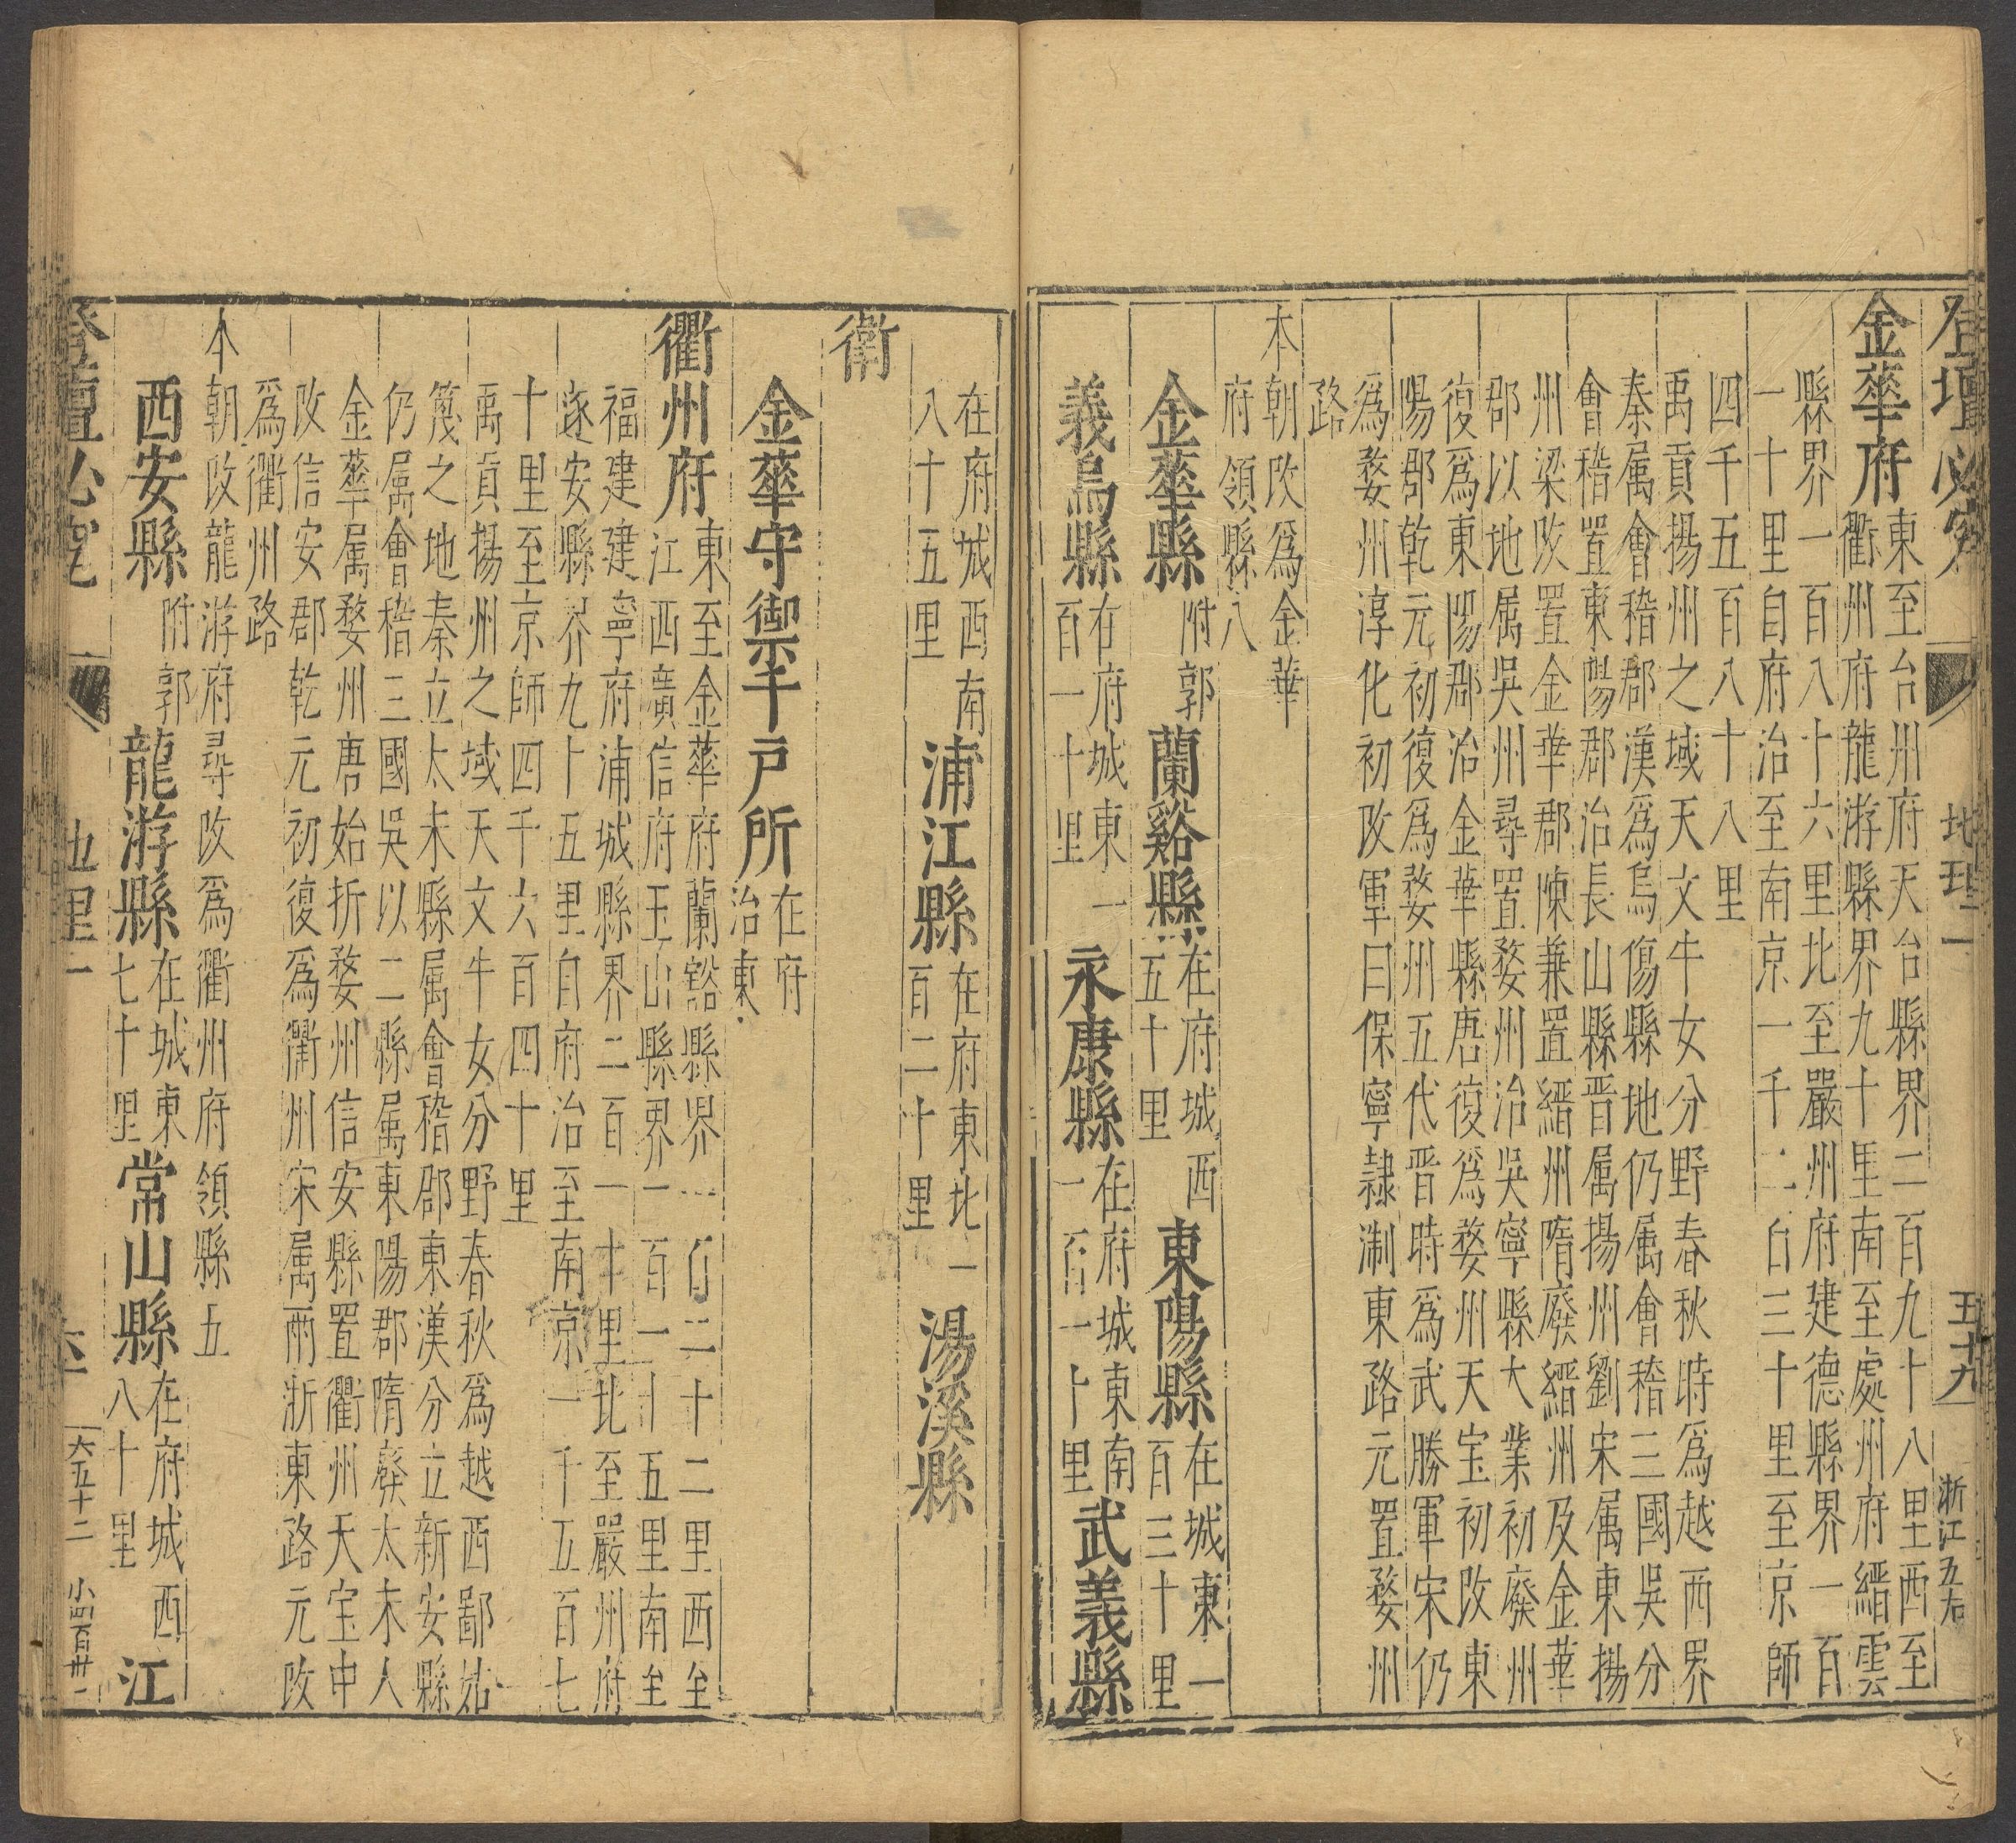 登壇必究 地理二 五十九 浙江五右
金華府東至台州府天台縣界二百九十八里西至
衢州府龍游縣界九十里南至處州府縉雲
縣界一百八十六里北至嚴州府建德縣界一百
一十里自府治至南京一千二百三十里至京師
四千五百八十八里
禹貢揚州之域天文牛女分野春秋時爲越西界
秦属會稽郡漢爲烏傷縣地仍属會稽三國吳分
會稽置東陽郡治長山縣晋属揚州劉宋属東揚
州梁改置金華郡陳兼置縉州隋廢縉州及金華
郡以地属吳州尋置婺州治吳寧縣大業初廢州
復爲東陽郡治金華縣唐復爲婺州天宝初改東
陽郡乾元初復爲婺州五代晋時爲武勝軍宋仍
爲婺州淳化初改軍曰保寧隷浙東路元置婺州
路
本朝改爲金華
府領縣八
金華縣附郭 蘭谿縣在府城西五十里 東陽縣在城東一百三十里
義烏縣在府城東一百一十里 永康縣在府城東南一百一十里 武義縣
在府城西南八十五里 浦江縣在府東北一百二十里 湯溪縣
衛
金華守禦千戶所在府治東
衢州府東至金華府蘭谿縣界一百二十二里西至
江西廣信府玉山縣界一百一十五里南至
福建建寧府浦城縣界二百一十里北至嚴州府
遂安縣界九十五里自府治至南京一千五百七
十里至京師四千六百四十里
禹貢揚州之域天文牛女分野春秋爲越西鄙姑
篾之地秦立太末縣属會稽郡東漢分立新安縣
仍属會稽三國吳以二縣属東陽郡隋廢太末入
金華属婺州唐始折婺州信安縣置衢州天宝中
改信安郡乾元初復爲衢州宋属兩浙東路元改
爲衢州路
本朝改龍游府尋改爲衢州府領縣五
西安縣附郭 龍游縣在城東七十里 常山縣在府城西八十里 江
登壇必究 地理二 六十 大五十二 小四百卅一